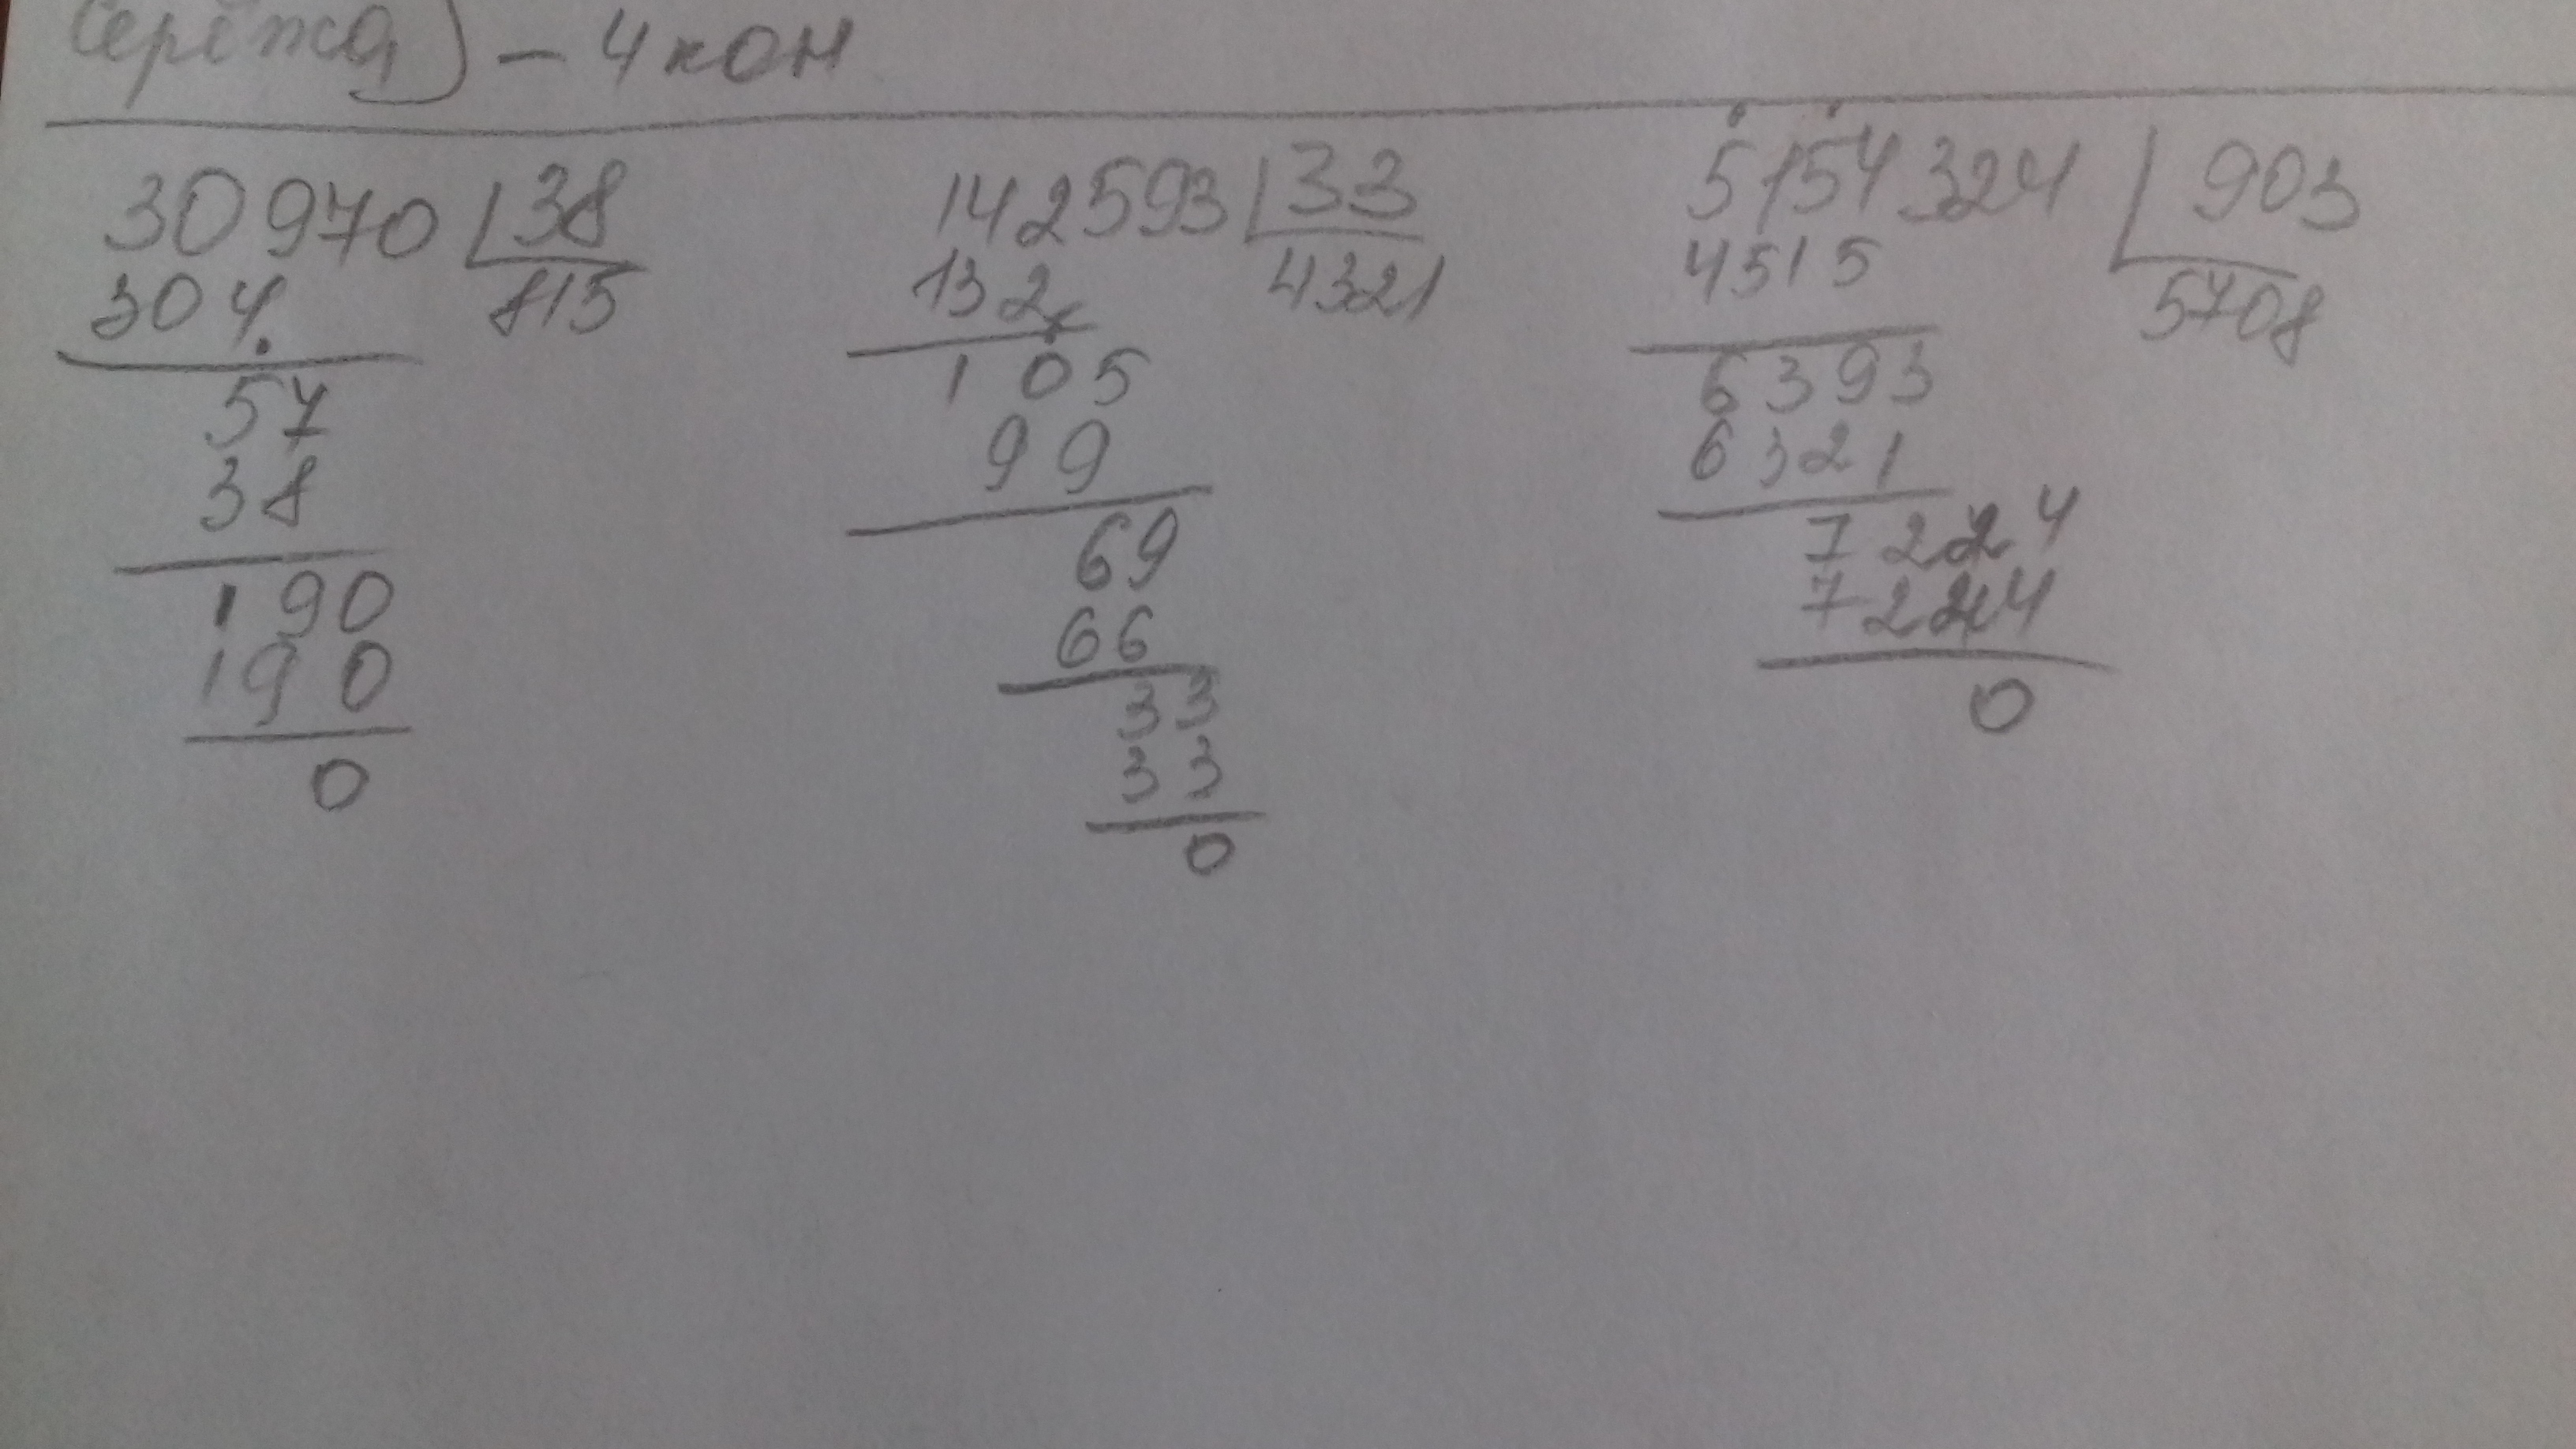 Сергіжа) – 4 кон
30970 38
304 815
57
38
190
190
0
142593 33
132 4321
105
99
69
66
33
33
0
5154324 903
4515 5708
6393
6321
7224
7224
0